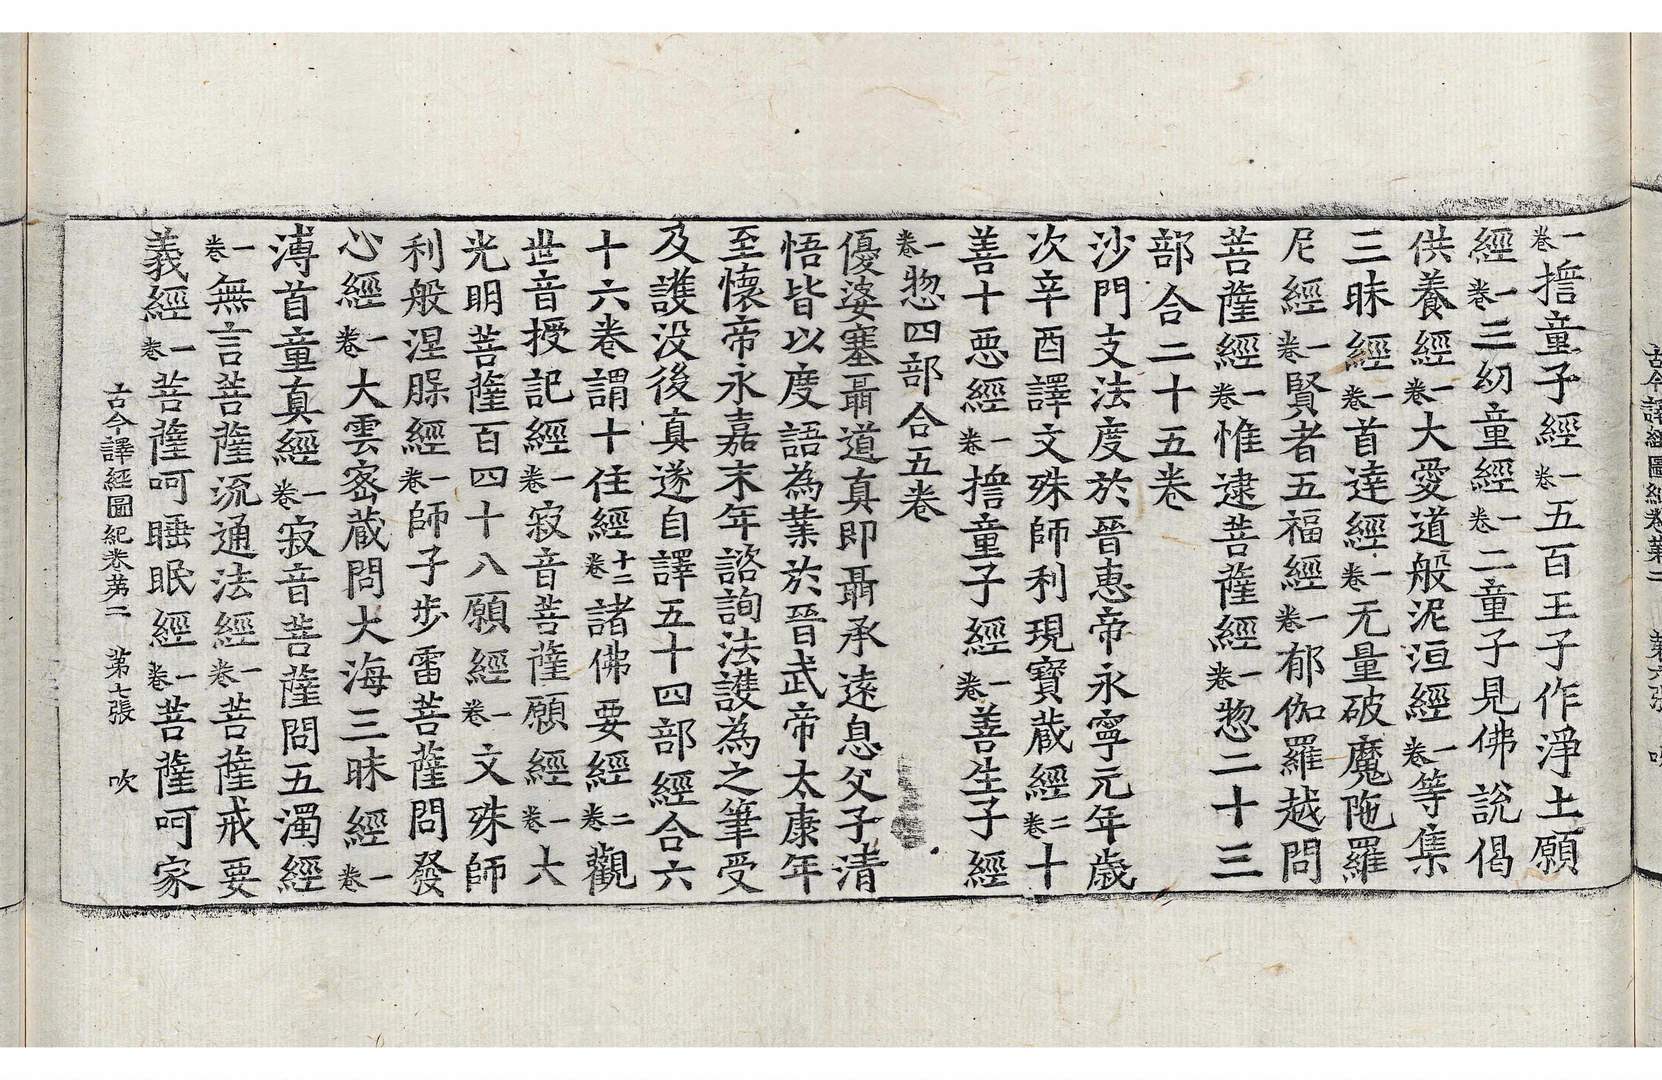 一卷擔童子經一卷五百王子作淨土願
經一卷三幼童經一卷二童子見佛說偈
供養經一卷大愛道般泥洹經一卷等集
三昧經一卷首達經一卷无量破魔陁羅
尼經一卷賢者五福經一卷郁伽羅越問
菩薩經一卷惟逮菩薩經一卷惣二十三
部合二十五卷
沙門支法度於晉惠帝永寧元年歲
次辛酉譯文殊師利現寶蔵經二卷十
善十惡經一卷擔童子經一卷善生子經
一卷惣四部合五卷
優婆塞聶道真即聶承遠息父子清
悟皆以度語為業於晉武帝太康年
至懷帝永嘉末年諮詢法護為之筆受
及護没後真遂自譯五十四部經合六
十六卷謂十住經十二卷諸佛要經二卷觀
世音授記經一卷寂音菩薩願經一卷大
光明菩薩百四十八願經一卷文殊師
利般涅脵經一卷師子步雷菩薩問發
心經一卷大雲宻蔵問大海三昧經一卷
溥首童真經一卷寂音菩薩問五濁經
一卷無言菩薩流通法經一卷菩薩戒要
義經一卷菩薩呵睡眠經一卷菩薩呵家
古今譯經圖紀卷苐二　苐七張　吹